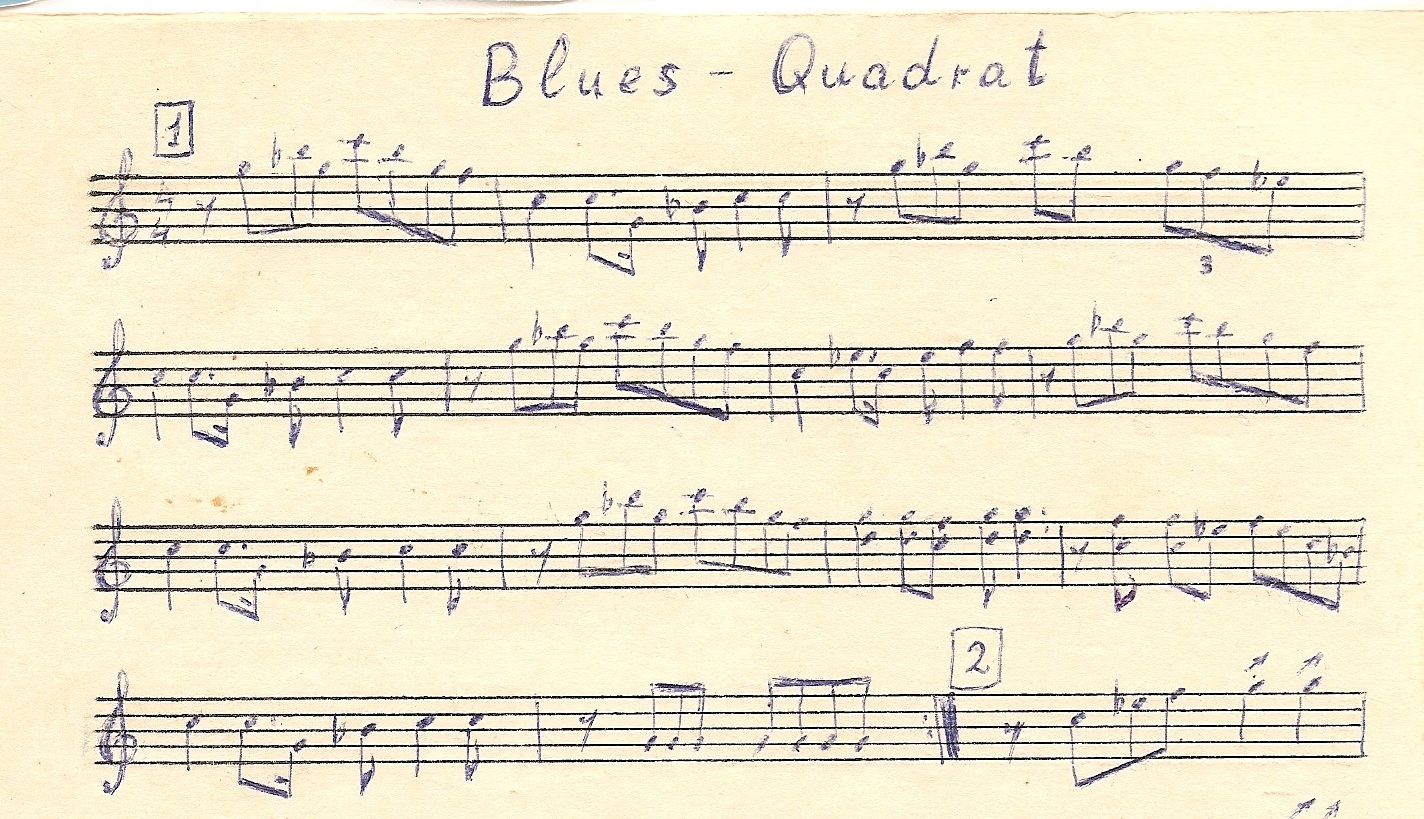 Blues - Quadrat
1
4
4
3
2